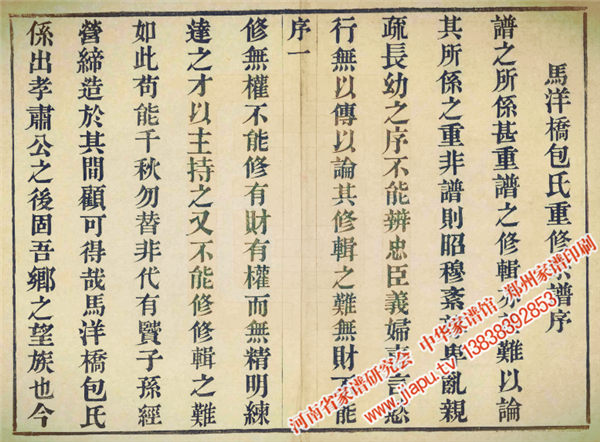 馬洋橋包氏重修宗譜序
譜之所係甚重譜之修輯難以論
其所係之重非譜則昭穆紊亂親
疏長幼之序不能辨忠臣義婦嘉言懿
行無以傳以論其修輯之難無財不能
序一
修無權不能修有財有權而無精明練
達之才以主持之又不能修修輯之難
如此苟能千秋勿替非代有賢子孫經
營締造於其間顧可得哉馬洋橋包氏
係出孝肅公之後固吾鄉之望族也今
河南省家谱研究会 中华家谱馆 郑州家谱印刷
www.jiapu.tv/ 13838392853